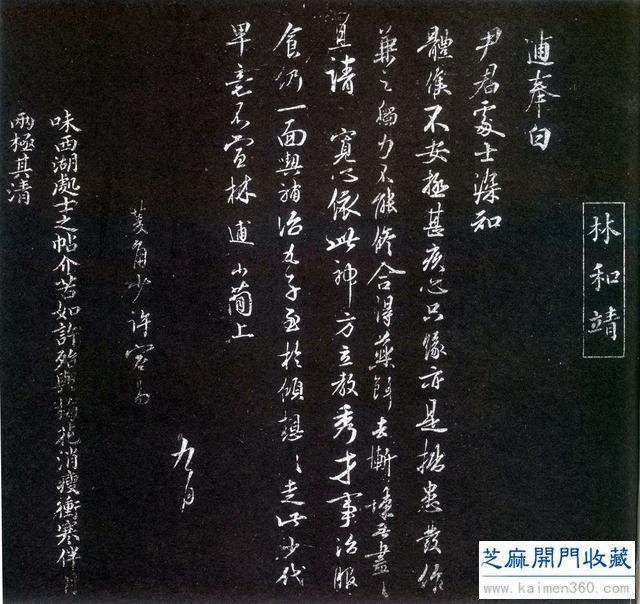 林和靖
逋奉白
尹君處士深知
體候不安極甚疾心只緣亦是舊患發作
兼之獨力不能修合得藥餌去慚悚吾盡ミ
且請 寬心依此神方立教秀才事治服
食仍一面與補治夫子亟於傾想ミ走此少代
單毫不宣林逋小簡上
菱角少許容易
九月
味西湖處士之帖介苦如許殆與梅花消瘦衝寒伴月
兩極其清
芝麻開門收藏
www.kaimen360.com